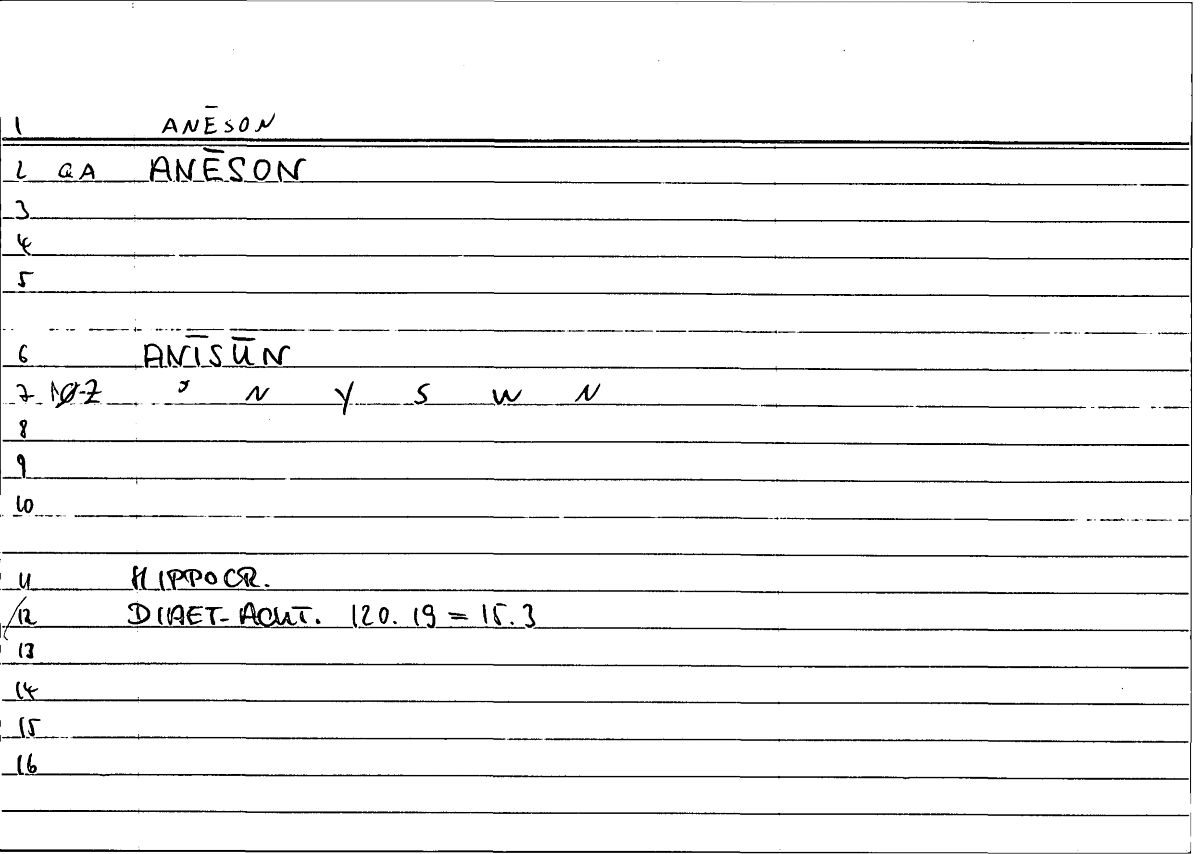 1 ANĒSON
2 QA ANĒSON
3
4
5
6 ANĪSŪN
7 NØZ ʾ N Y S W N
8
9
10
11 HIPPOCR.
12 DIAET-ACUT. 120.19 = 15.3
13
14
15
16